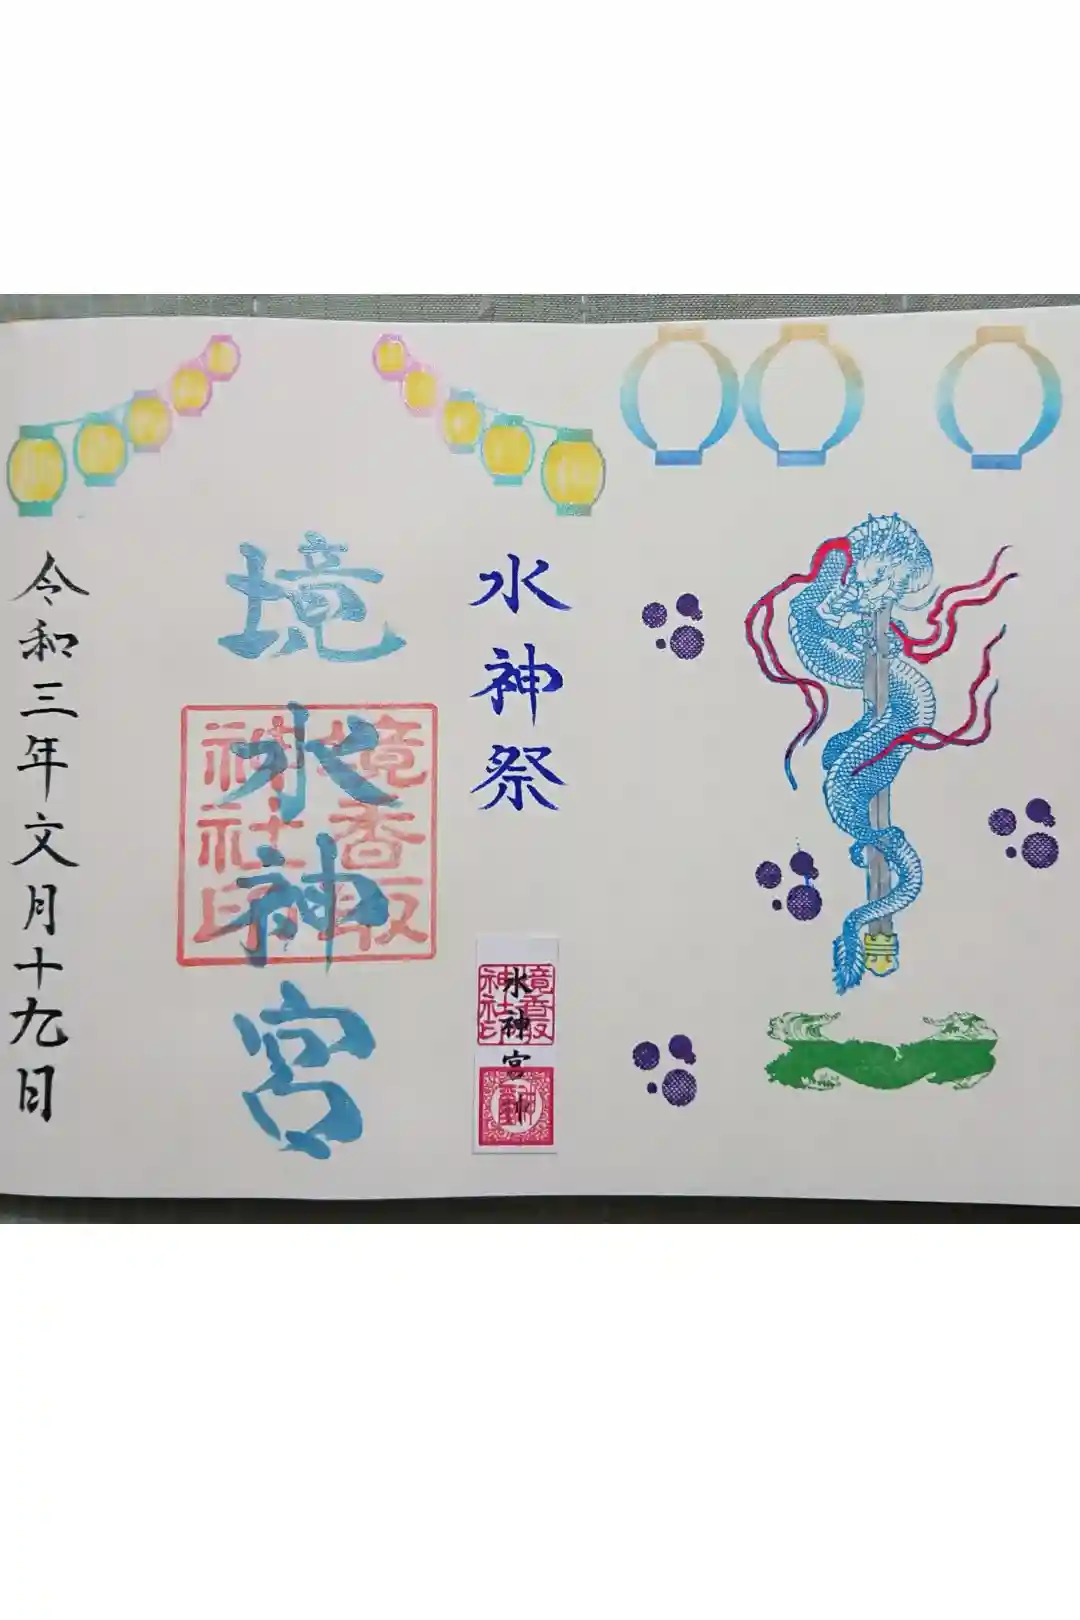 水神祭
境水神宮
境香取
神社印
令和三年文月十九日
境香取
神社印
水神宮